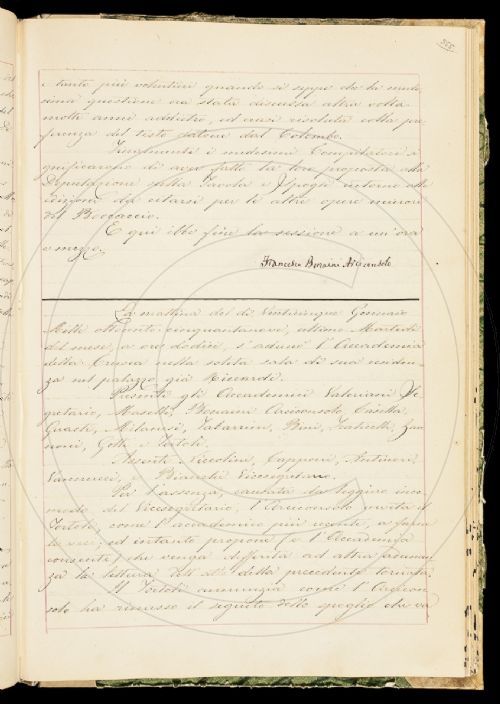 355
tanto più volentieri quando si seppe che la mede
sima questione era stata discussa altra volta
molti anni addietro, ed erasi risoluta colla pre
ferenza del testo datone dal Colombo.
Finalmente i medesimi Compilatori si
gnificarono di aver fatto la loro proposta alla
Deputazione sulla Tavola e Spoglio intorno alle
edizioni da citarsi per le altre opere minori
del Boccaccio.
E qui ebbe fine la sessione a un'ora
e mezzo.
Francesco Bonaini Arciconsolo
La mattina del dì Venticinque Gennaio
Mille ottocento cinquantanove, ultimo Martedì
del mese, a ore dodici, s'adunò l'Accademia
della Crusca nella solita sala di sua residen
za nel palazzo già Riccardi.
Presenti gli Accademici Valeriani Se
gretario, Maselli, Bonaini Arciconsolo, Casella,
Guasti, Milanesi, Zazzeroni, Bini, Fraticelli, Zan
noni, Gotti e Tortoli.
Assenti Niccolini, Capponi, Antinori,
Vannucci, Bianchi Vicesegretario.
Per l'assenza, causata da leggiero inco
modo del Vicesegretario, l'Arciconsolo invita il
Tortoli, come l'accademico più recente, a farne
le veci, ed intanto propone, e l'Accademia
consente, che venga differita ad altra adunan
za la lettura dell'atto della precedente tornata.
Il Tortoli annunzia come l'Arcicon
solo ha rimesso il seguito dello spoglio che va